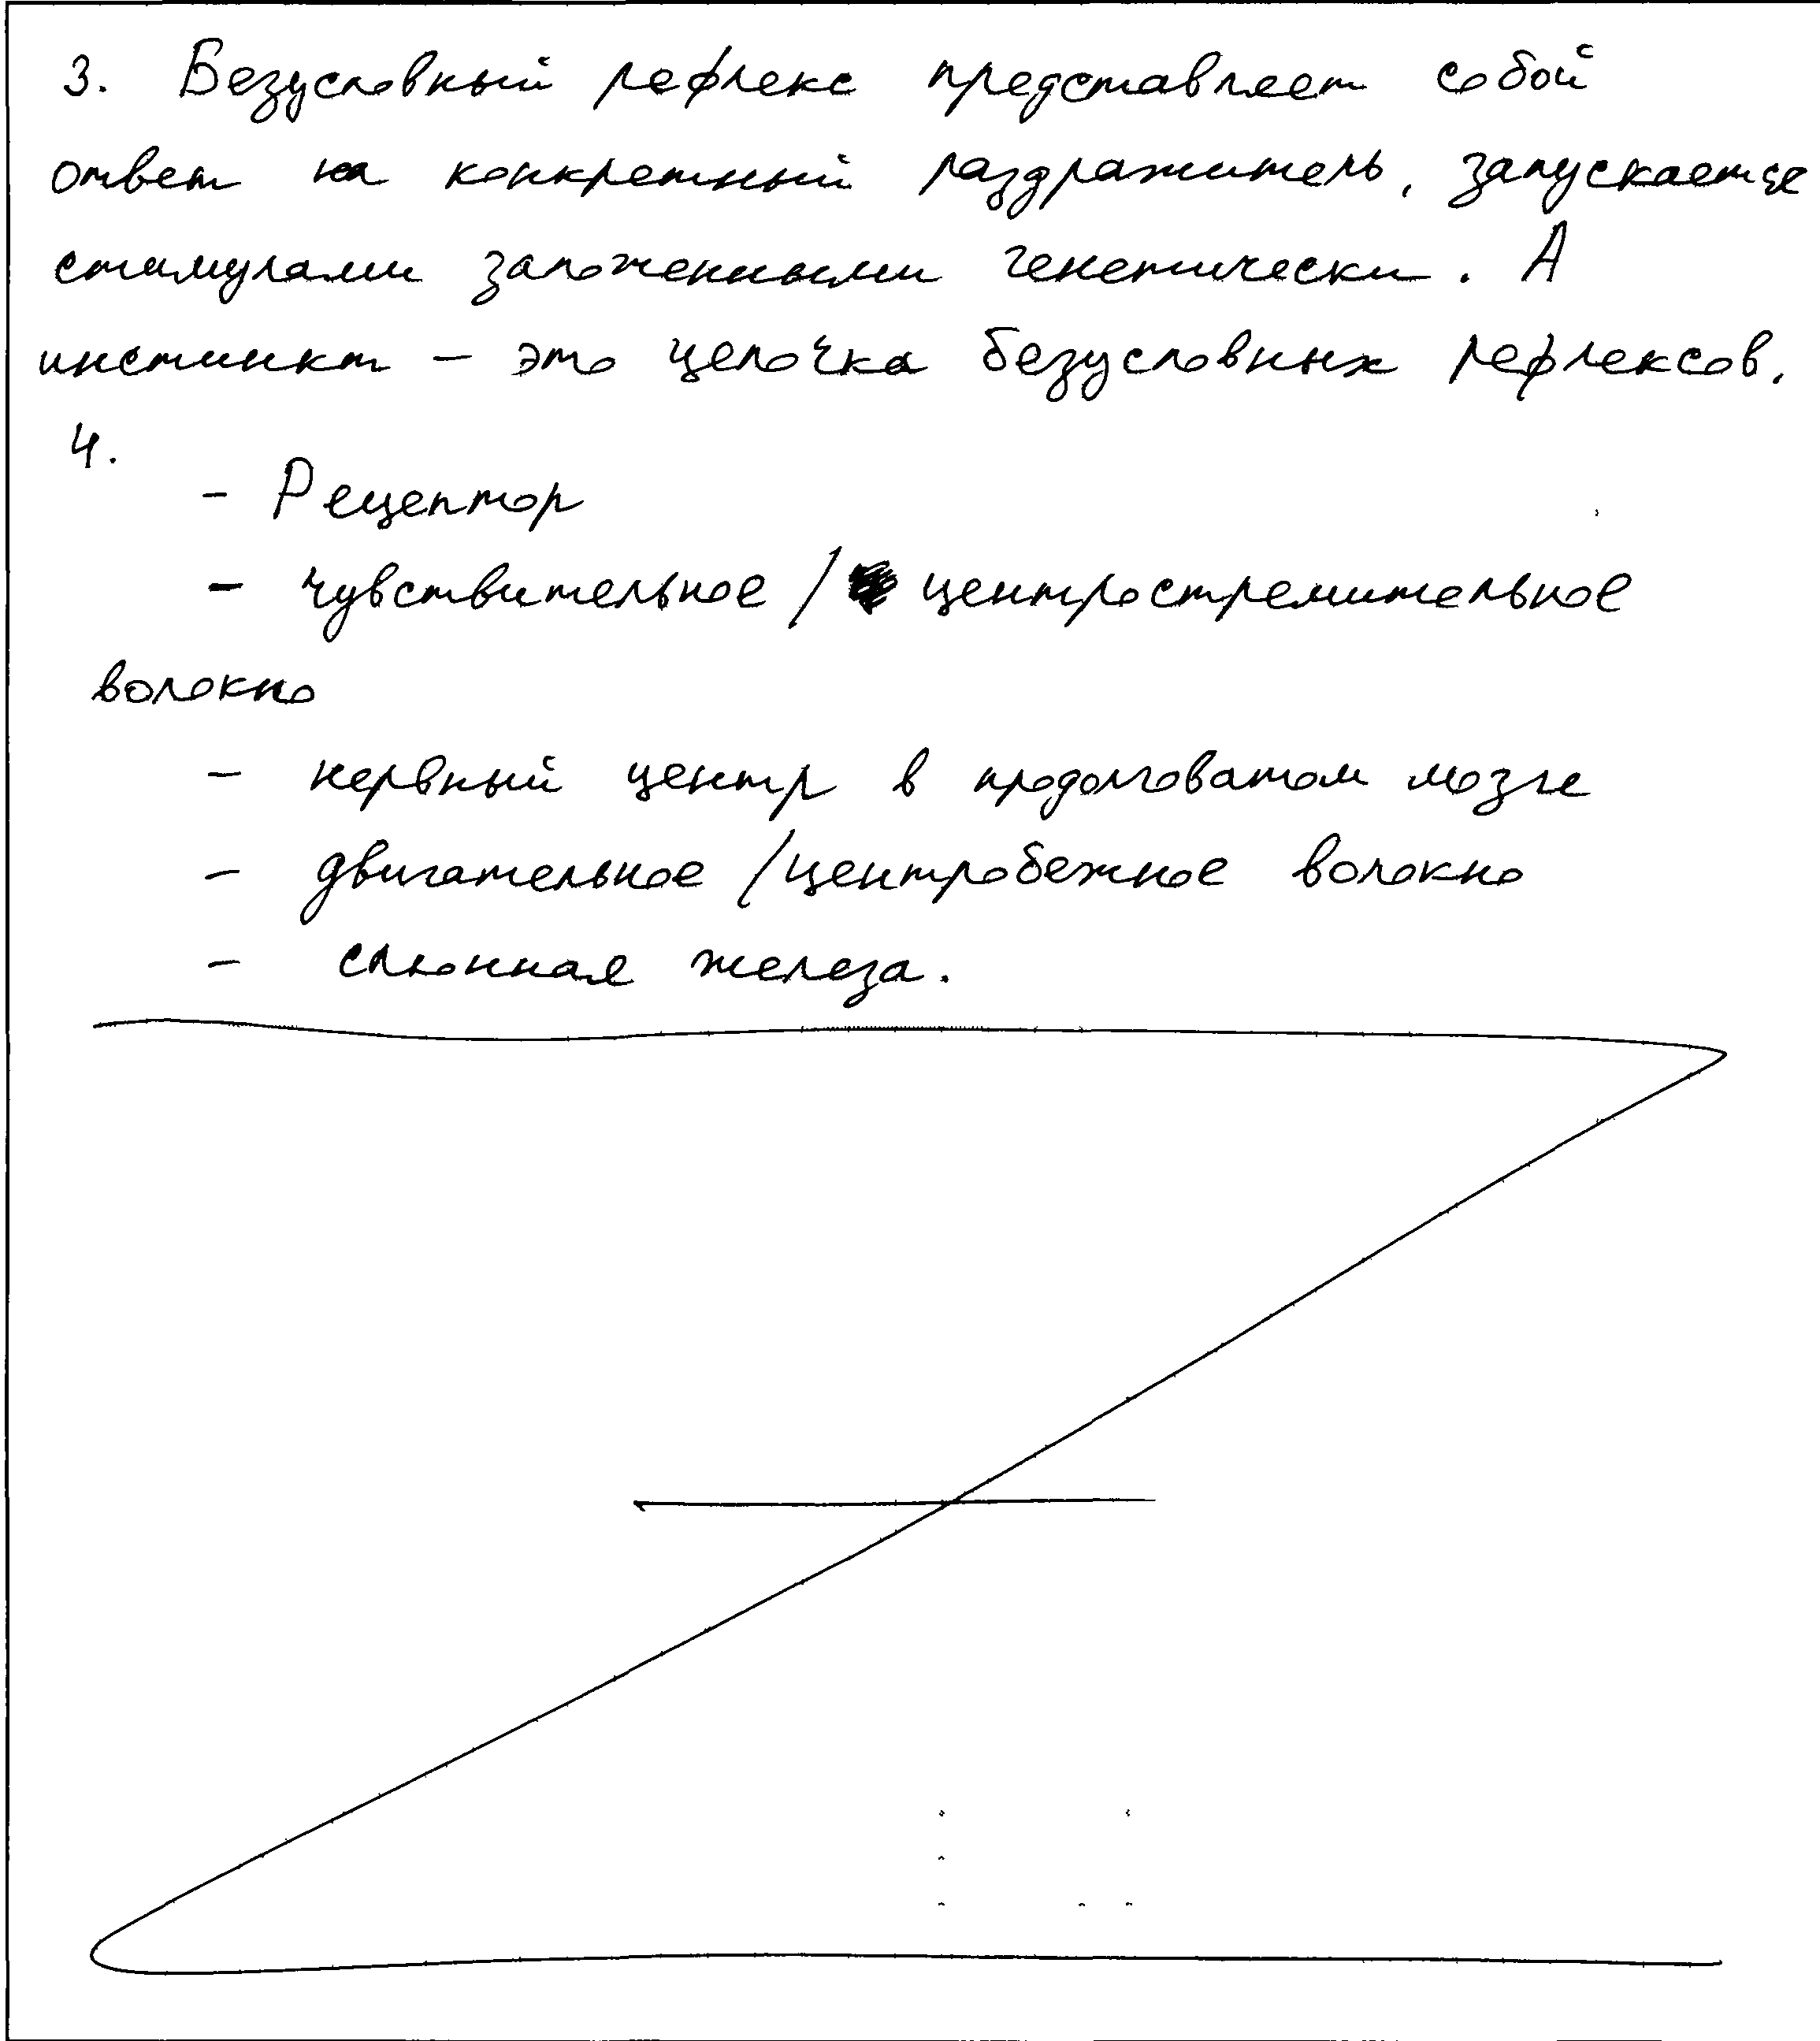 3. Безусловный рефлекс представляет собой
ответ на конкретный раздражитель, запускается
стимулами заложенными генетически. А
инстинкт – это цепочка безусловных рефлексов.
4.
– Рецептор
– чувствительное / центростремительное
волокно
– нервный центр в продолговатом мозге
– двигательное / центробежное волокно
– слюнная железа.